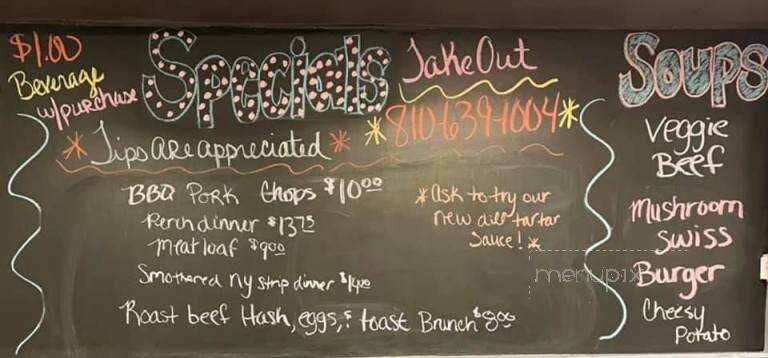 $1.00
Beverage
w/purchase
Specials
Take Out
810-639-1004
Tips are appreciated
BBQ Pork Chops $10.00
Perch dinner $13.75
Meatloaf $9.00
Smothered ny strip dinner $14.00
Roast beef Hash, eggs, & toast Brunch $8.00
*Ask to try our
new dill tartar
Sauce!*
Soups
Veggie
Beef
Mushroom
Swiss
Burger
Cheesy
Potato
menupix